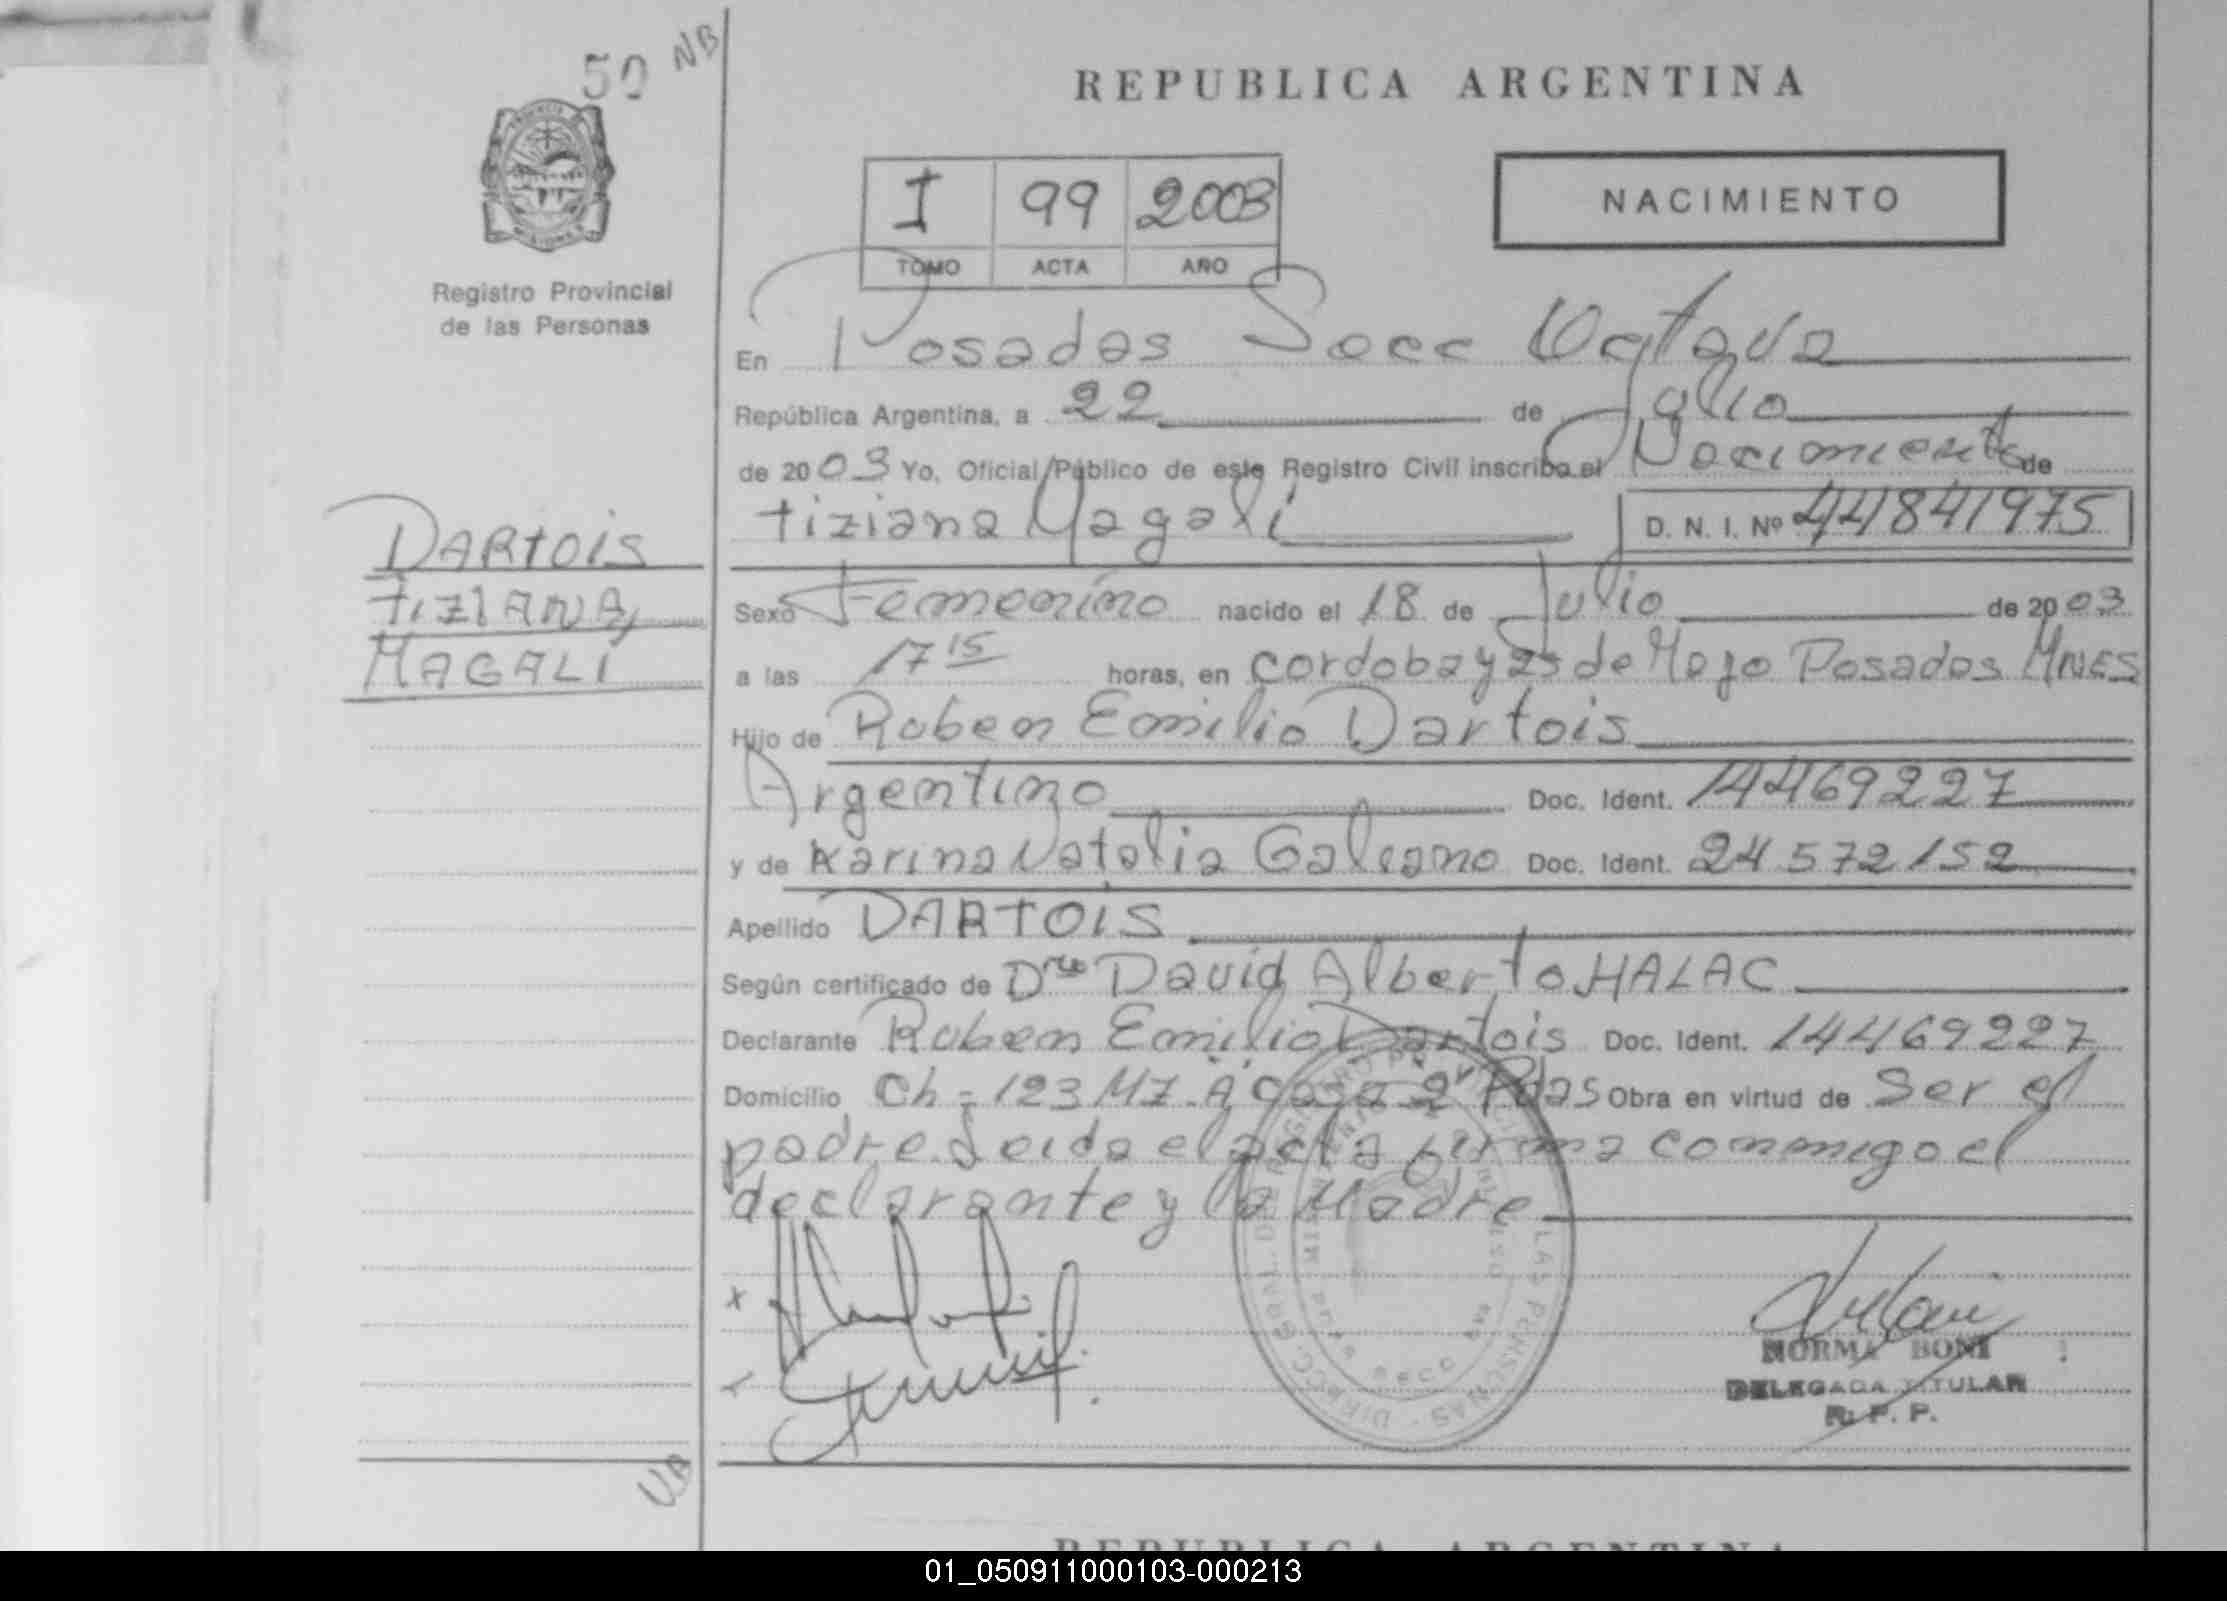 50 NB
REPUBLICA ARGENTINA
I 99 2003
TOMO ACTA AÑO
NACIMIENTO
Registro Provincial
de las Personas
En Posadas Secc Octava
República Argentina, a 22 de Julio
de 2003 Yo, Oficial Público de este Registro Civil inscribo el Nacimiento de
Tiziana Magali D. N. I. Nº 44841975
DARTOIS
TIZIANA
MAGALI
Sexo Femenino nacido el 18 de Julio de 2003
a las 17 15 horas, en Cordoba y 25 de Mayo Posadas MNES
Hijo de Ruben Emilio Dartois
Argentino Doc. Ident. 14469227
y de Karina Natalia Galeano Doc. Ident. 24572152
Apellido DARTOIS
Según certificado de David Alberto HALAC
Declarante Ruben Emilio Dartois Doc. Ident. 14469227
Domicilio Ch - 123 MZ. A casa 2 Pdas Obra en virtud de Ser el
padre. Leida el acta firma conmigo el
declarante y la Madre
x
NORMA BONI
DELEGADA TITULAR
R. P. P.
REPUBLICA ARGENTINA
01_050911000103-000213